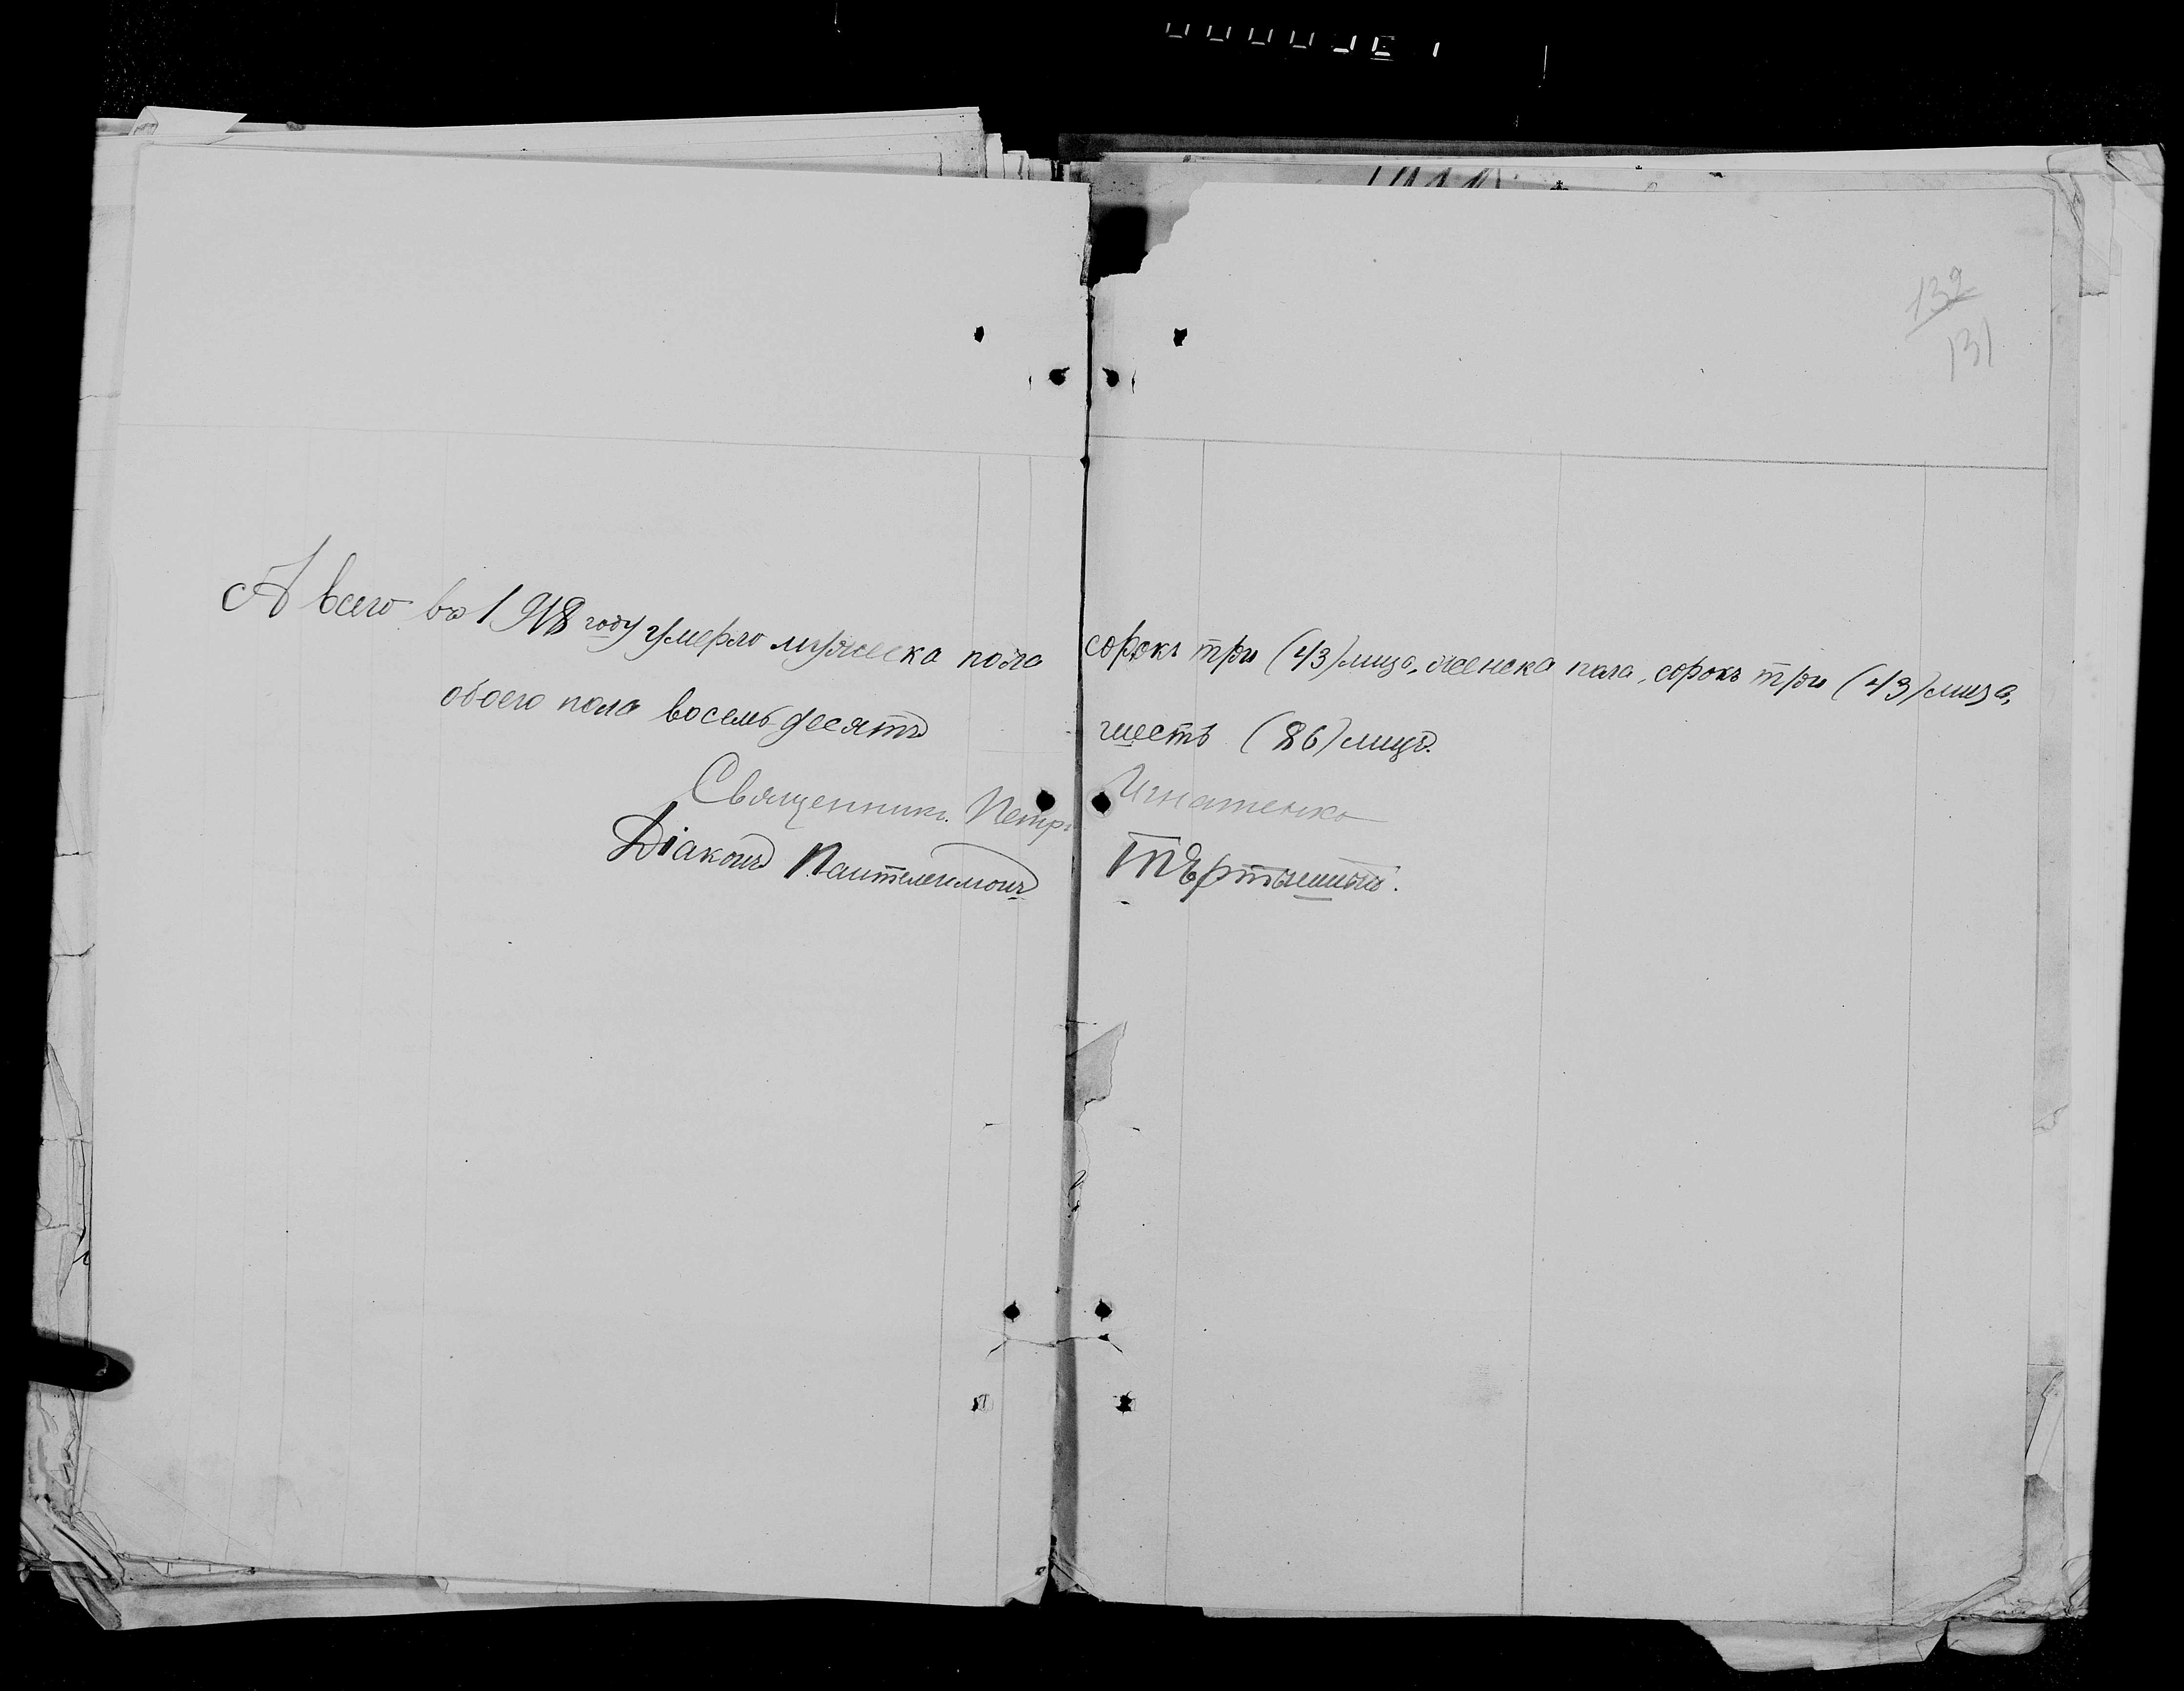 132
131
А всего въ 1918 году умерло мужеска пола сорокъ три (43) лица, женска пола, сорокъ три (43) лица,
обоего пола восемьдесятъ шесть (86) лицъ.
Священникъ Петръ Игнатенко
Діаконъ Пантелеимонъ Тѣртышный.